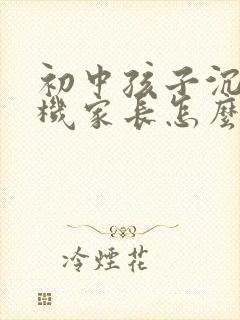 初中孩子沉
機家長怎麼
冷煙花